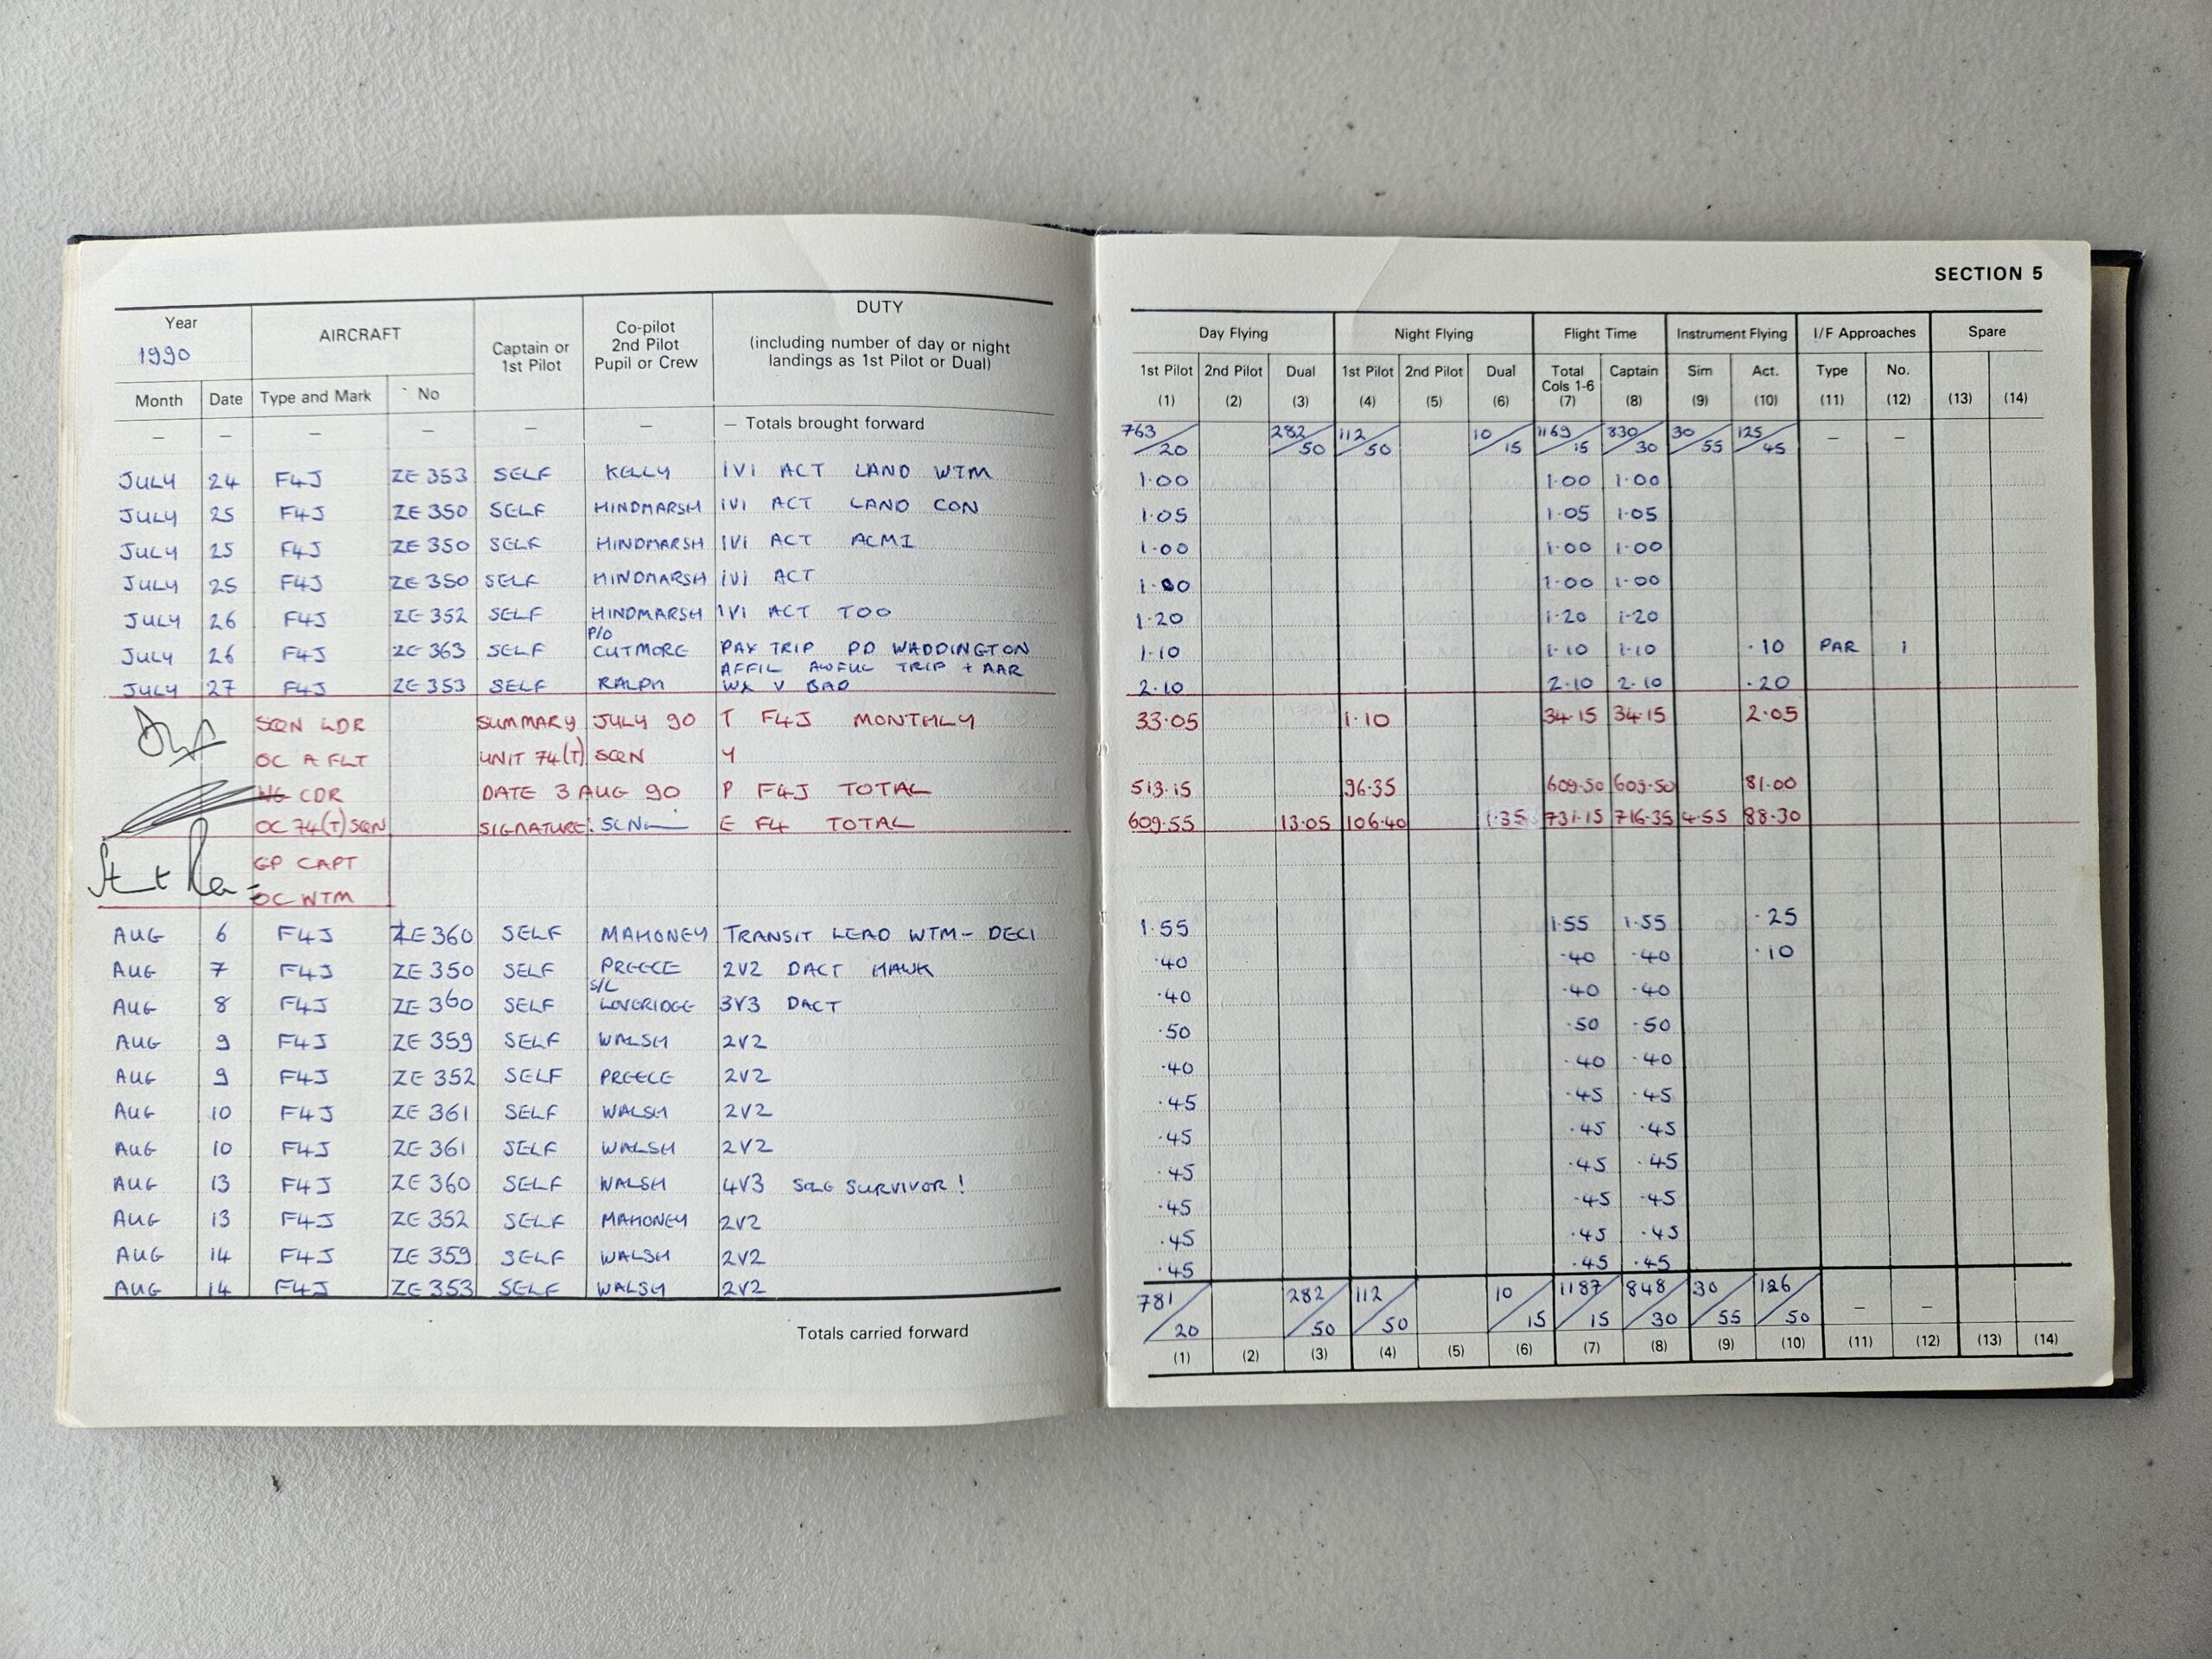 SECTION 5
Year 1990 AIRCRAFT Captain or 1st Pilot Co-pilot 2nd Pilot Pupil or Crew DUTY (including number of day or night landings as 1st Pilot or Dual) Day Flying Night Flying Flight Time Instrument Flying I/F Approaches Spare
Month Date Type and Mark No 1st Pilot (1) 2nd Pilot (2) Dual (3) 1st Pilot (4) 2nd Pilot (5) Dual (6) Total Cols 1-6 (7) Captain (8) Sim (9) Act. (10) Type (11) No. (12) (13) (14)
— — — — — — — Totals brought forward 763/20 282/50 112/50 10/15 1169/15 830/30 30/55 125/45 — —
JULY 24 F4J ZE 353 SELF KELLY 1V1 ACT LAND WTM 1·00 1·00 1·00
JULY 25 F4J ZE 350 SELF HINDMARSH 1V1 ACT LAND CON 1·05 1·05 1·05
JULY 25 F4J ZE 350 SELF HINDMARSH 1V1 ACT ACMI 1·00 1·00 1·00
JULY 25 F4J ZE 350 SELF HINDMARSH 1V1 ACT 1·00 1·00 1·00
JULY 26 F4J ZE 352 SELF HINDMARSH 1V1 ACT TOO 1·20 1·20 1·20
JULY 26 F4J ZE 363 SELF P/O CUTMORE PAX TRIP PD WADDINGTON 1·10 1·10 1·10 ·10 PAR 1
JULY 27 F4J ZE 353 SELF RALPH AFFIL AWFUL TRIP + AAR WX V BAD 2·10 2·10 2·10 ·20
SQN LDR SUMMARY JULY 90 T F4J MONTHLY 33·05 1·10 34·15 34·15 2·05
OC A FLT UNIT 74(T) SQN Y
WG CDR DATE 3 AUG 90 P F4J TOTAL 513·15 96·35 609·50 609·50 81·00
OC 74(T) SQN SIGNATURE: E F4 TOTAL 609·55 13·05 106·40 1·35 731·15 716·35 4·55 88·30
GP CAPT
OC WTM
AUG 6 F4J ZE 360 SELF MAHONEY TRANSIT LEAD WTM - DECI 1·55 1·55 1·55 ·25
AUG 7 F4J ZE 350 SELF PREECE 2V2 DACT HAWK ·40 ·40 ·40 ·10
AUG 8 F4J ZE 360 SELF S/L LOVERIDGE 3V3 DACT ·40 ·40 ·40
AUG 9 F4J ZE 359 SELF WALSH 2V2 ·50 ·50 ·50
AUG 9 F4J ZE 352 SELF PREECE 2V2 ·40 ·40 ·40
AUG 10 F4J ZE 361 SELF WALSH 2V2 ·45 ·45 ·45
AUG 10 F4J ZE 361 SELF WALSH 2V2 ·45 ·45 ·45
AUG 13 F4J ZE 360 SELF WALSH 4V3 SOLE SURVIVOR! ·45 ·45 ·45
AUG 13 F4J ZE 352 SELF MAHONEY 2V2 ·45 ·45 ·45
AUG 14 F4J ZE 359 SELF WALSH 2V2 ·45 ·45 ·45
AUG 14 F4J ZE 353 SELF WALSH 2V2 ·45 ·45 ·45
Totals carried forward 781/20 282/50 112/50 10/15 1187/15 848/30 30/55 126/50 — —
(1) (2) (3) (4) (5) (6) (7) (8) (9) (10) (11) (12) (13) (14)